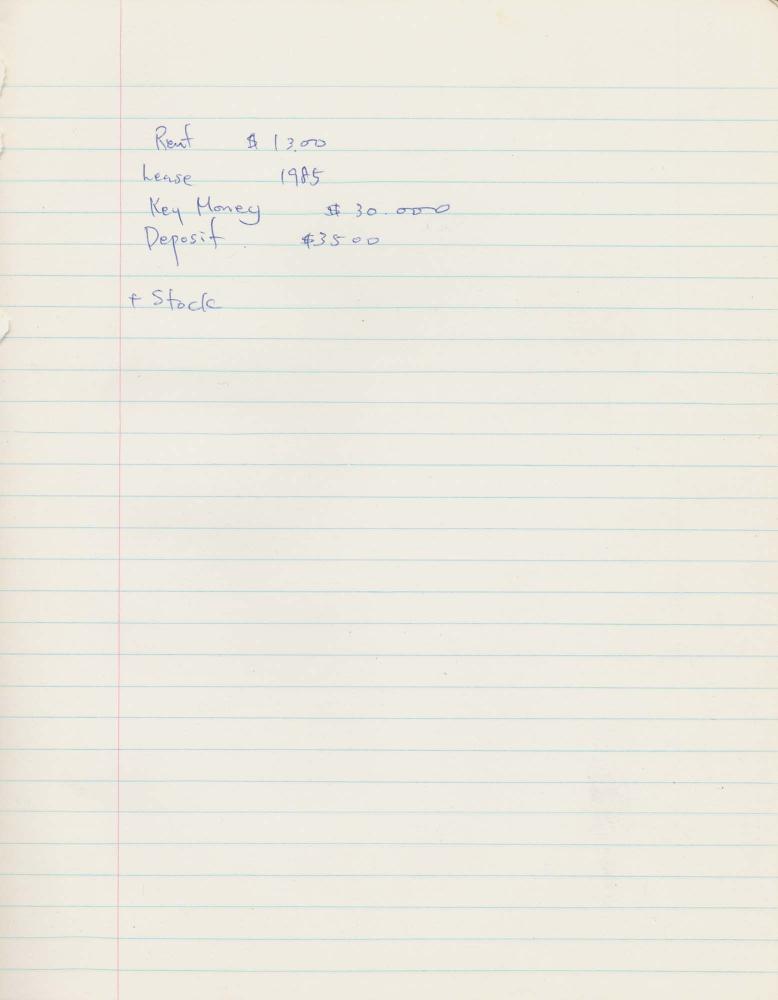 Rent $ 1300
Lease 1985
Key Money $ 30.000
Deposit $3500
+ Stock